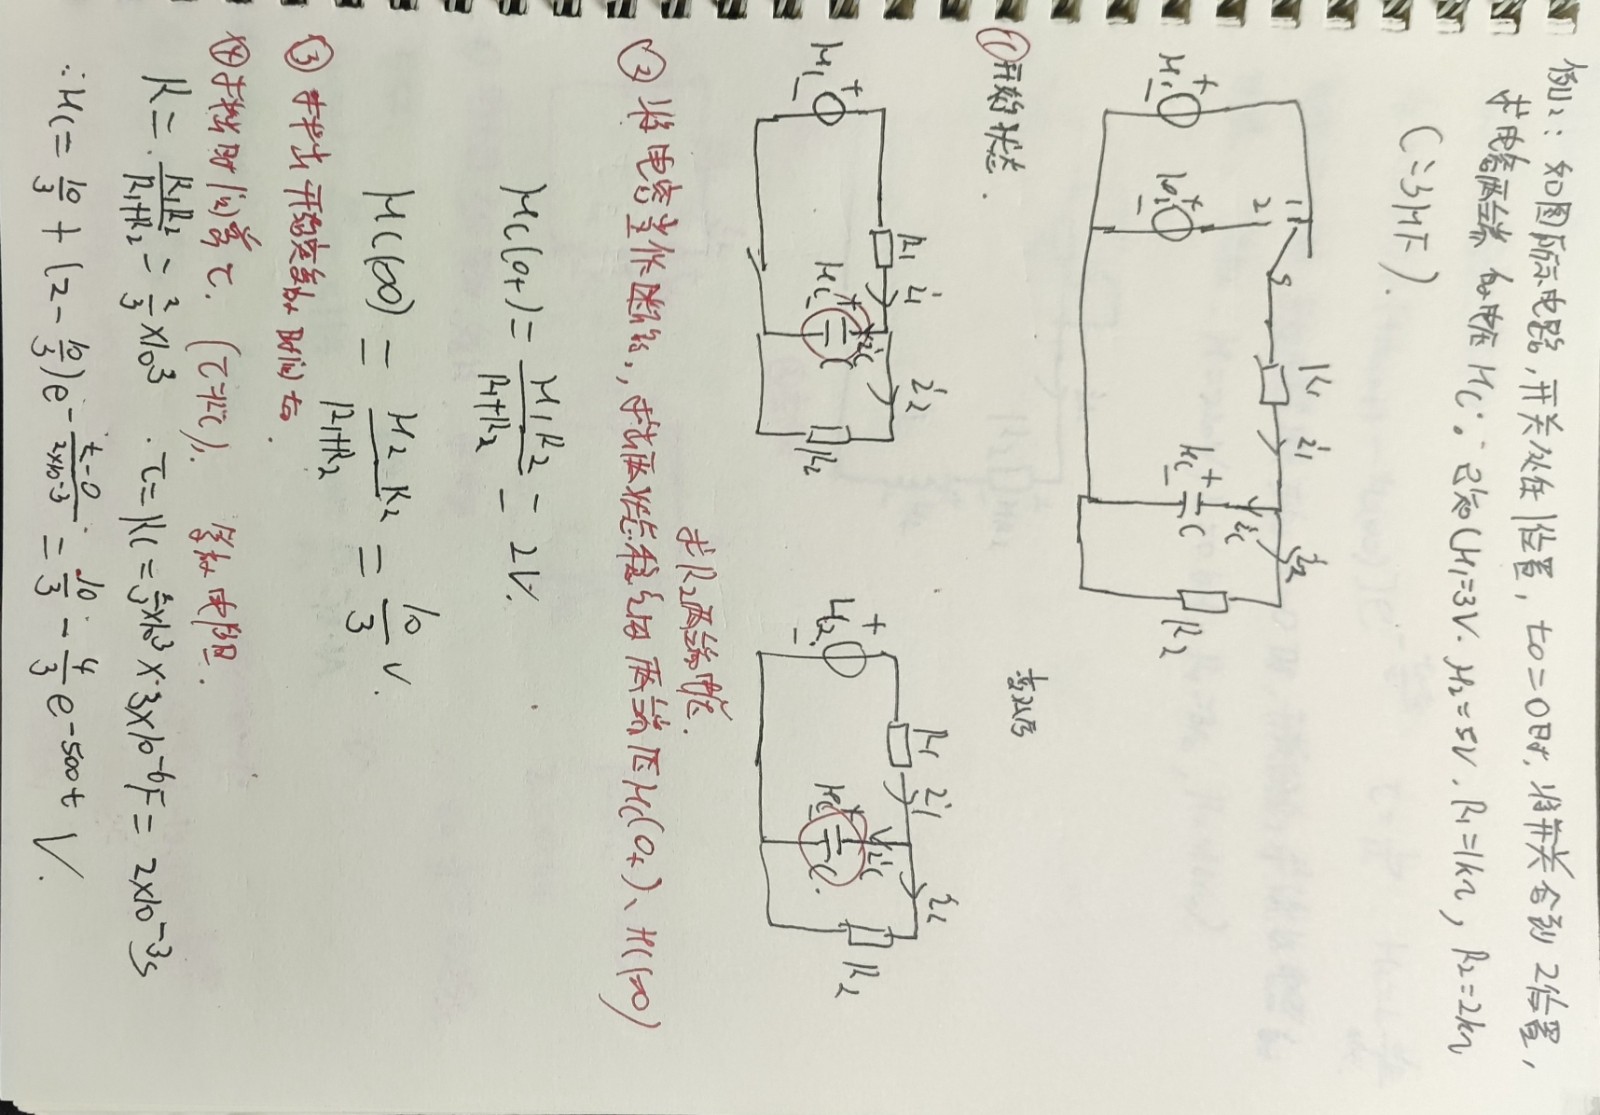 例2：如图所示电路，开关处在1位置，t0=0时，将开关合到2位置，
求电容两端的电压μc。已知（μ1=3V. μ2=5V. R1=1kΩ，R2=2kΩ
C=3μF）.
μ1 + -
μ2 + -
1
2
S
R1
i1
ic
i2
μc + -
C
R2
①开始状态.
μ1 + -
R1
i1
μc + -
ic
C
i2
R2
μ2 + -
R1
i1
μc + -
ic
C.
i2
R2
求R2两端电压.
②将电容当作断路，求出两状态稳定后两端压μc(0+)、μc(∞)
μc(0+)=μ1R2/R1+R2=2V.
μc(∞)=μ2R2/R1+R2=10/3 V.
③求出开始变动的时间t0.
④求出时间常τ.（τ=RC）. 等效电阻.
R=R1R2/R1+R2=2/3×10³ . τ=RC=2/3×10³×3×10⁻⁶F=2×10⁻³s
∴μc=10/3+(2-10/3)e^-(t-0)/2×10⁻³=10/3-4/3e^-500t V.